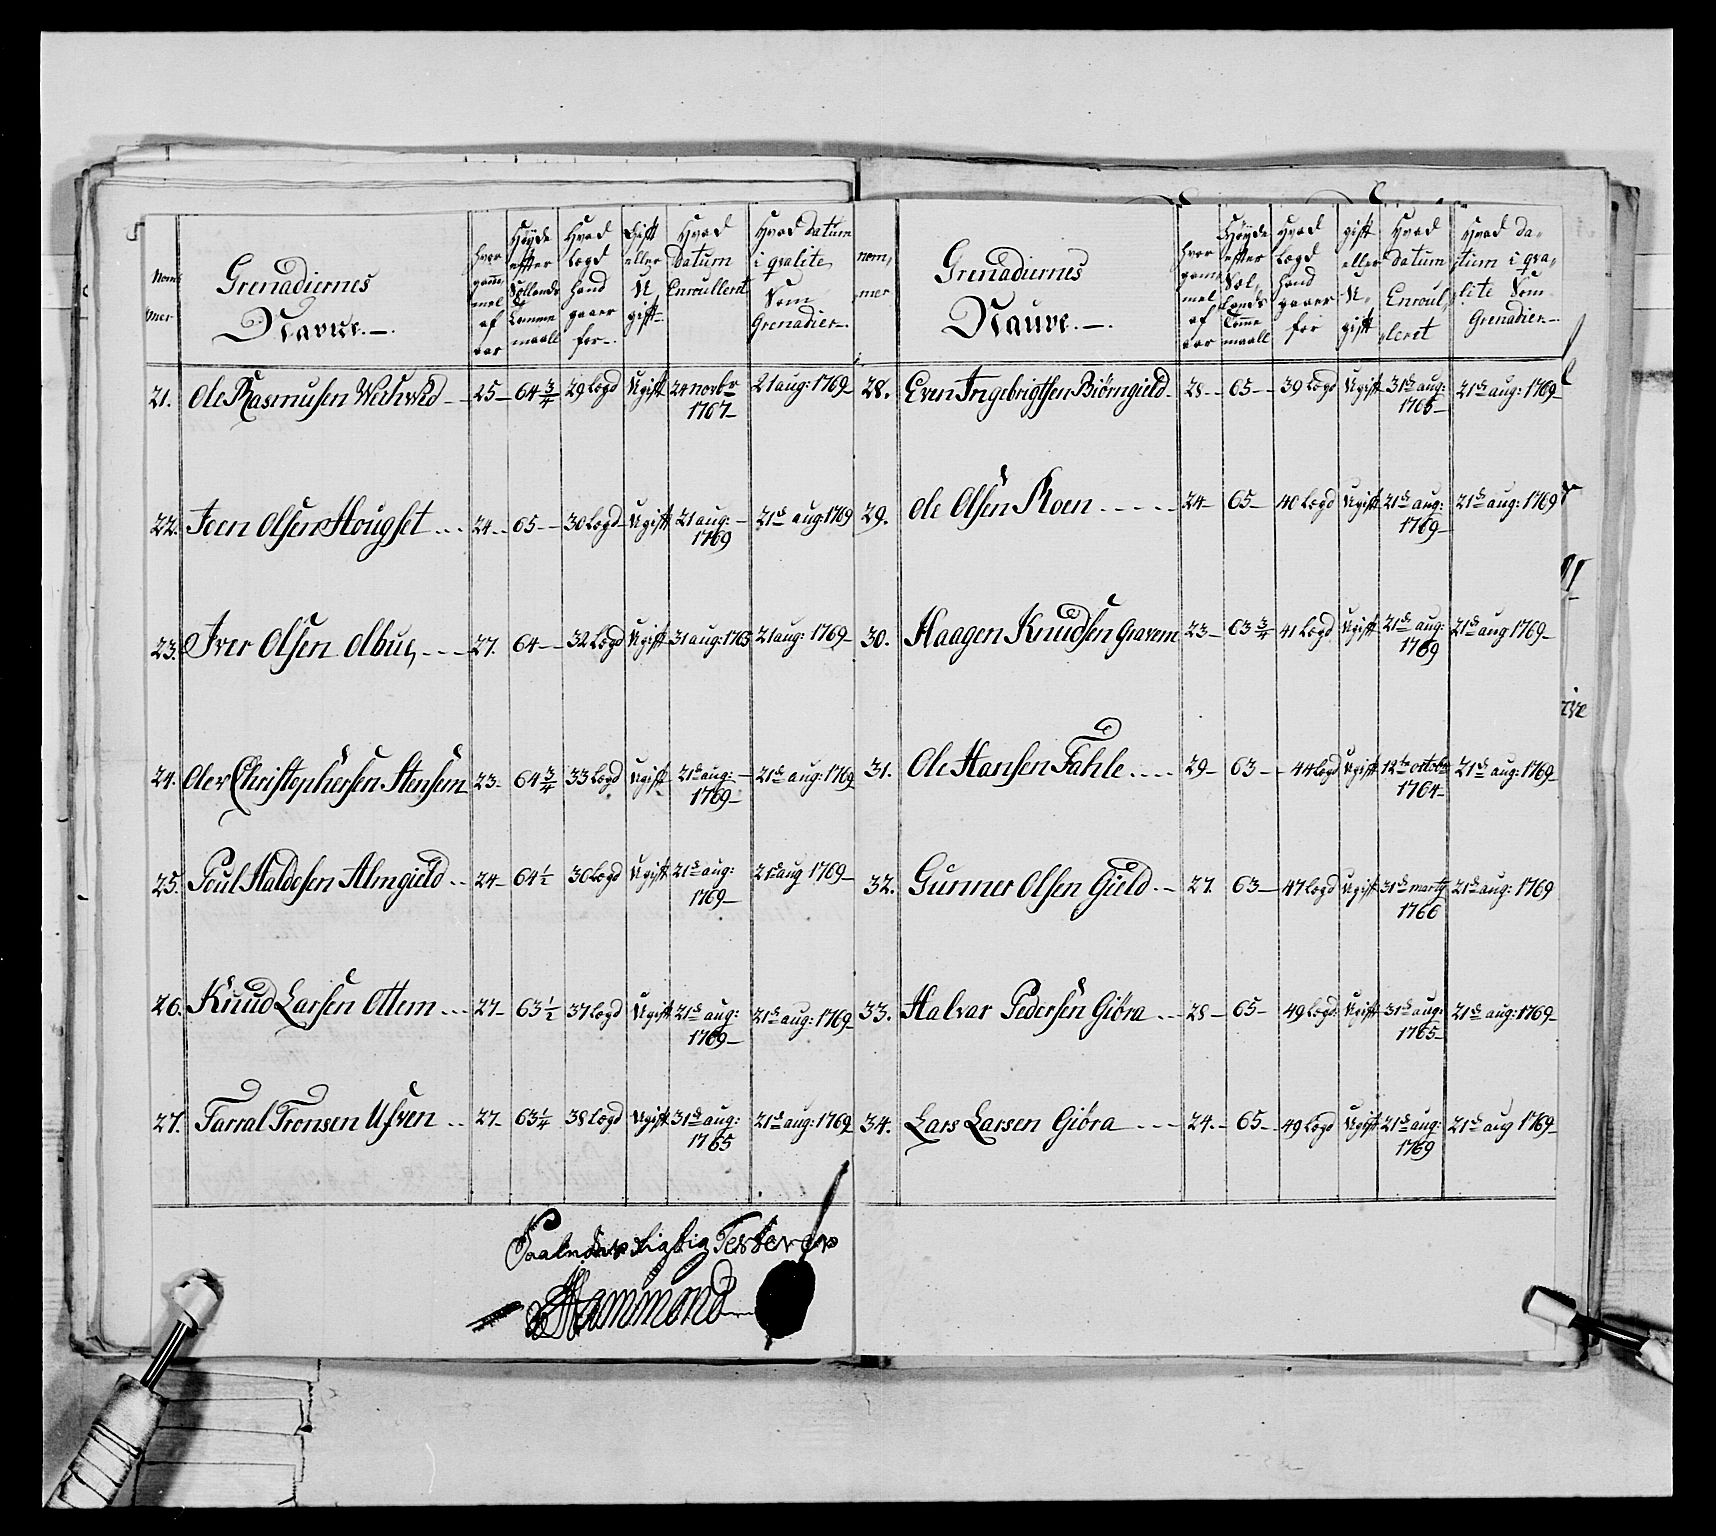 Nom, mer | Grenadiernes Navne.— | hvor gammel af aar | Høyde effter Sællands Tomme maall | Hvad Lægd hand gaaer for—. | Gift eller Ugift | Hvad datum Enroulleret | Hvad datum i qvalite Som Grenadier.
21. Ole Rasmusen — 25— 64 3/4 29 Lægd Ugift 24 novbr 1767— 21 aug: 1769—
22. Joen Olsen Hougset ... 24.. 65— 30 Lægd— Ugift 21 aug:— 1769 21de aug: 1769
23. Iver Olsen Albue, ---- 27. 64— 32 Lægd Ugift 31 aug: 1765 21 aug: 1769—
24. Christophersen Stensem 23. 64 3/4 33 Lægd Ugift 21de aug:— 1769— 21de aug: 1769
25. Poul Haldosen Almgield .. 24— 64 1/2 36 Lægd Ugift 21de aug: 1769— 21de aug 1769—
26. Knud Larsen Ottem ... 27— 63 1/2 37 Lægd Ugift 21de aug: 1769— 21de aug: 1769
27. Tarral Tronsen Usven .. 27. 63 1/4 38 Lægd Ugift 31de aug: 1765 21de aug: 1769
Hammond
nom, mer | Grenadiernes Naune.— | hvor gammel af aar | Høyde effter Sællands Tomme maall | Hvad Lægd hand gaaer for | gift eller U-gift | Hvad datum Enroulleret | Hvad datum i qvalite Som Grenadier.—
28. Even Ingebrigtsen Biörngield. 28-. 65— 39 Lægd Ugift 31de aug: 1765— 21de aug: 1769—
29. Ole Olsen Roen ----- 24— 65— 40 Lægd Ugift 21de aug: 1769— 21de aug: 1769
30. Haagen Knudsen Gravem 23— 63 3/4 41 Lægd. Ugift 21de aug: 1769 21de aug 1769—
31. Ole Hansen Fahle .... 29— 63—. 44 Lægd Ugift 12te octobr 1764— 21de aug: 1769—
32. Gunner Olsen Gield .— 27. 63— 47 Lægd Ugift 31de marty 1766 21de aug: 1769
33. Halvar Pedersen Giöra .-- 28— 65— 49 Lægd. Ugift 31de aug: 1765— 21de aug: 1769—
34. Lars Larsen Giöra ---- 24.— 65— 49 Lægd Ugift 21de aug: 1769 21de aug 1769—